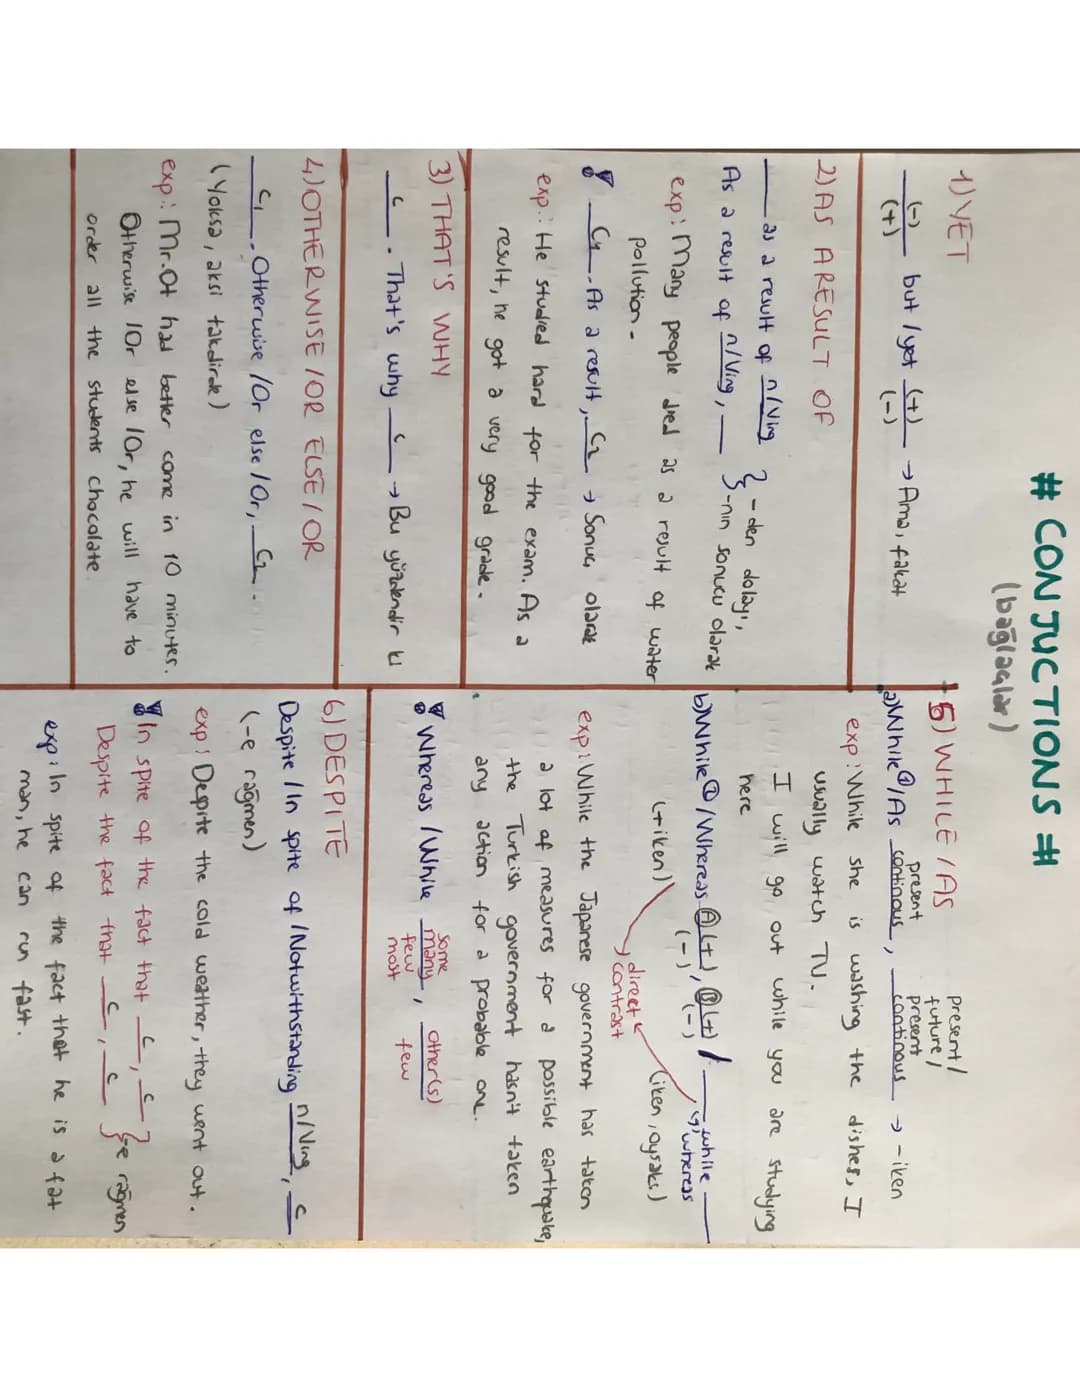 # CONJUCTIONS #
(bağlaçlar)
1) YET
(-) but / yet (+) → Ama, fakat
(+) (-)
2) AS ARESULT OF
___ as a result of n/Ving } -den dolayı,
As a result of n/Ving, ___ } -nın sonucu olarak
exp: Many people died as a result of water
pollution.
C1. As a result, C2 → Sonuç olarak
exp.: He studied hard for the exam. As a
result, he got a very good grade.
3) THAT'S WHY
c. That's why c → Bu yüzdendir ki
4) OTHERWISE / OR ELSE / OR
C1. Otherwise / Or else / Or, C2.
(Yoksa, aksi takdirde)
exp: Mr. Ot had better come in 10 minutes.
Otherwise / Or else / Or, he will have to
order all the students chocolate.
5) WHILE / AS
present/
future/
present present
a) While① / As continous, continous → -iken
exp: While she is washing the dishes, I
usually watch TV.
I will go out while you are studying
here
b) While② / Whereas A(+), B(+) / ___ while ___
(-) (-) (,) whereas
(+iken) direct (iken, oysaki)
contrast
exp: While the Japanese government has taken
a lot of measures for a possible earthquake,
the Turkish government hasn't taken
any action for a probable one.
Whereas / While some, other(s)
many
few few
most
6) DESPITE
Despite / In spite of / Notwithstanding n/Ving, c
(-e rağmen)
exp: Despite the cold weather, they went out.
In spite of the fact that c, c }
Despite the fact that c, c } -e rağmen
exp: In spite of the fact that he is a fat
man, he can run fast.